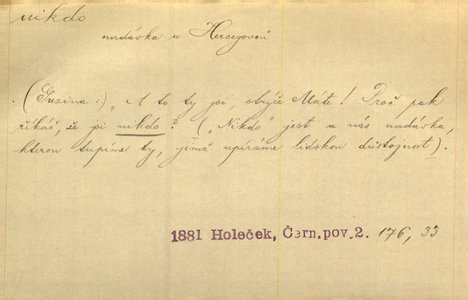 nikdo
nadávka u Hercegovců
(Guzina:) „A to ty jsi, strýče Mate! Proč pak
říkáš, že jsi nikdo? („Nikdo" jest u nás nadávka,
kterou tupíme ty, jimž upíráme lidskou důstojnost).
1881 Holeček, Čern. pov. 2. 176, 33